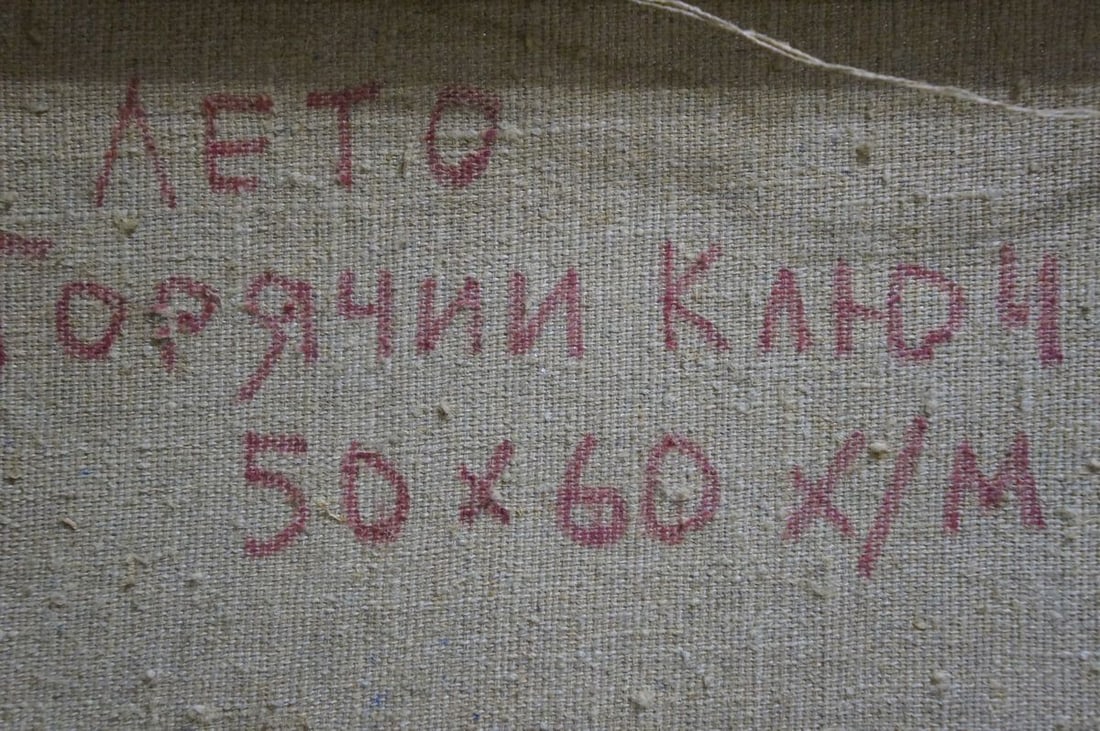 ЛЕТО
Горячии Ключ
50х60 х/м